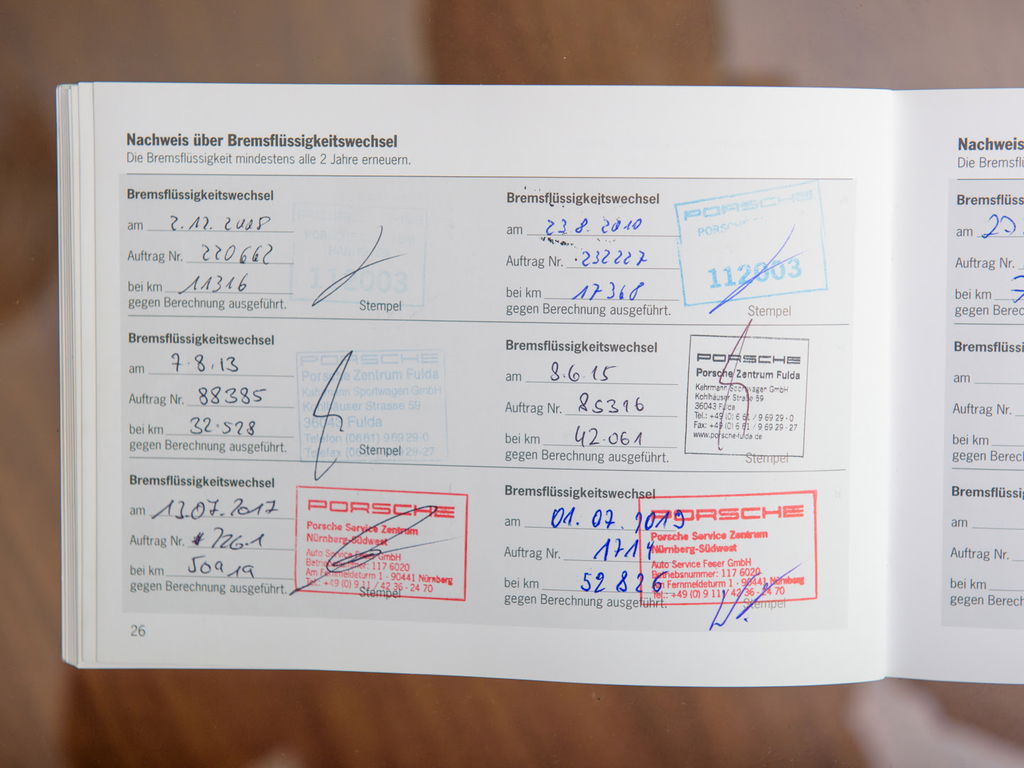 Nachweis über Bremsflüssigkeitswechsel
Die Bremsflüssigkeit mindestens alle 2 Jahre erneuern.
Bremsflüssigkeitswechsel
am 2.12.2008
Auftrag Nr. 220662
bei km 11316
gegen Berechnung ausgeführt.
PORSCHE
112003
Stempel
Bremsflüssigkeitswechsel
am 23.8.2010
Auftrag Nr. 232227
bei km 17368
gegen Berechnung ausgeführt.
PORSCHE
112003
Stempel
Bremsflüssigkeitswechsel
am 7.8.13
Auftrag Nr. 88385
bei km 32.528
gegen Berechnung ausgeführt.
PORSCHE
Porsche Zentrum Fulda
Kehrmann Sportwagen GmbH
Kohlhäuser Strasse 59
36043 Fulda
Telefon (0661) 9 69 29-0
Telefax (0661) 9 69 29-27
Stempel
Bremsflüssigkeitswechsel
am 8.6.15
Auftrag Nr. 85316
bei km 42.061
gegen Berechnung ausgeführt.
PORSCHE
Porsche Zentrum Fulda
Kehrmann Sportwagen GmbH
Kohlhäuser Straße 59
36043 Fulda
Tel.: +49 (0) 6 61 / 9 69 29 - 0
Fax: +49 (0) 6 61 / 9 69 29 - 27
www.porsche-fulda.de
Stempel
Bremsflüssigkeitswechsel
am 13.07.2017
Auftrag Nr. 7261
bei km 50919
gegen Berechnung ausgeführt.
PORSCHE
Porsche Service Zentrum
Nürnberg-Südwest
Auto Service Feser GmbH
Betriebsnummer: 117 6020
Am Fernmeldeturm 1 · 90441 Nürnberg
Tel.: +49 (0) 9 11 / 42 36 - 24 70
Stempel
Bremsflüssigkeitswechsel
am 01.07.2019
Auftrag Nr. 1714
bei km 52826
gegen Berechnung ausgeführt.
PORSCHE
Porsche Service Zentrum
Nürnberg-Südwest
Auto Service Feser GmbH
Betriebsnummer: 117 6020
Am Fernmeldeturm 1 · 90441 Nürnberg
Tel.: +49 (0) 9 11 / 42 36 - 24 70
Stempel
26
Nachweis
Die Bremsflü
Bremsflüss
am
Auftrag Nr.
bei km
gegen Berech
Bremsflüssi
am
Auftrag Nr.
bei km
gegen Berech
Bremsflüssi
am
Auftrag Nr.
bei km
gegen Berech